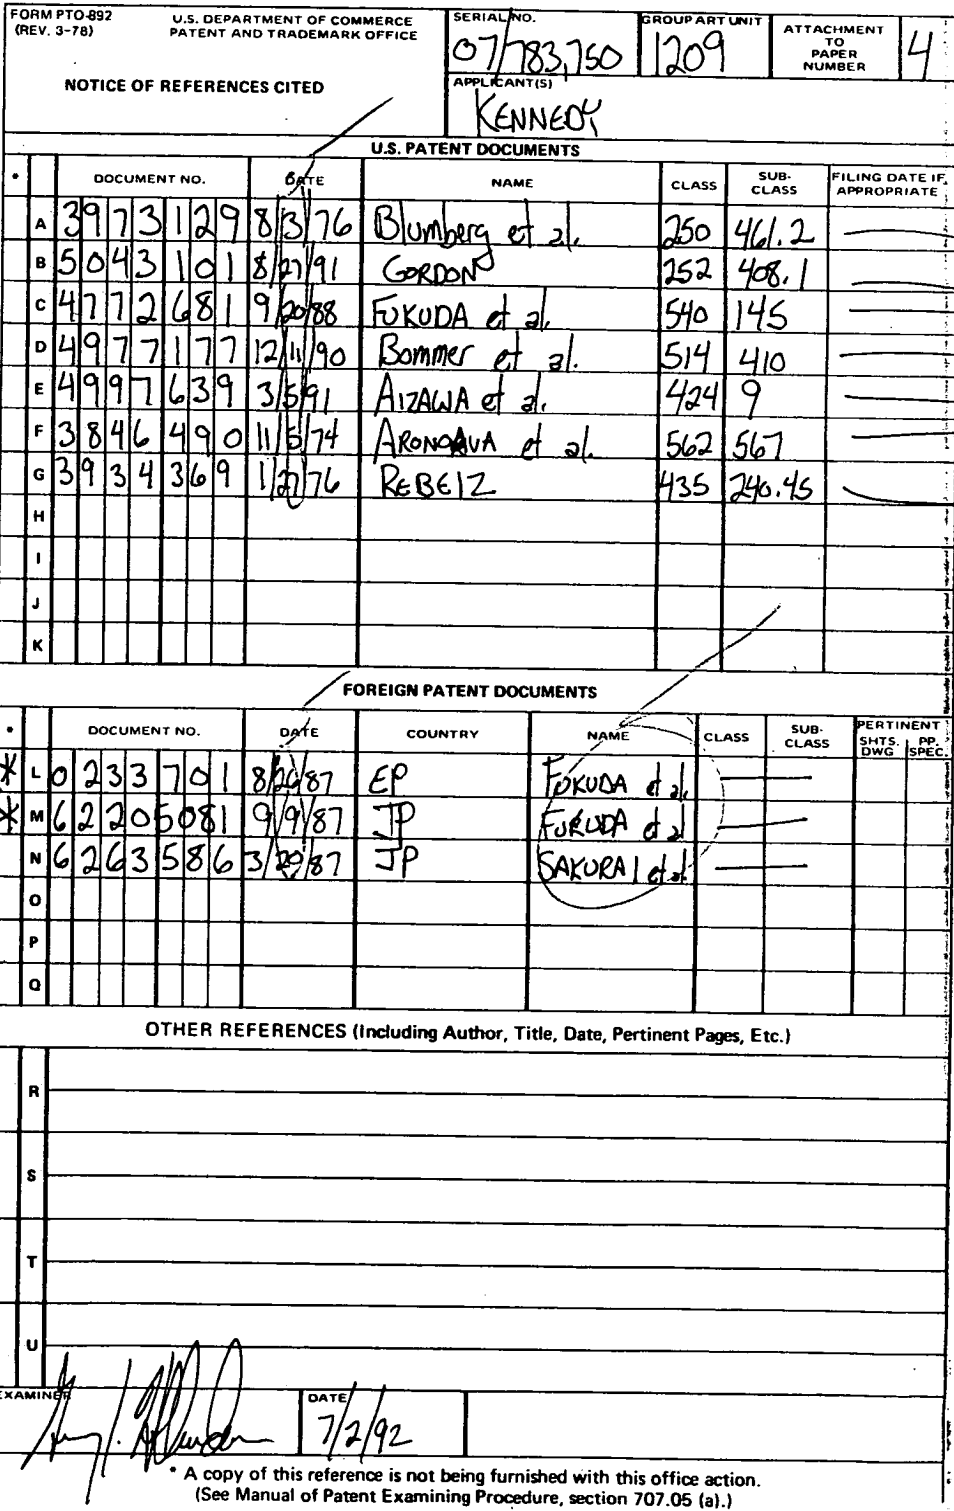 FORM PTO-892 U.S. DEPARTMENT OF COMMERCE
(REV. 3-78) PATENT AND TRADEMARK OFFICE
NOTICE OF REFERENCES CITED
SERIAL NO.
07/783,750
GROUP ART UNIT
1209
ATTACHMENT
TO
PAPER
NUMBER
4
APPLICANT(S)
KENNEDY
U.S. PATENT DOCUMENTS
* DOCUMENT NO. DATE NAME CLASS SUB-CLASS FILING DATE IF APPROPRIATE
A 3973129 8/3/76 Blumberg et al. 250 461.2
B 5043101 8/27/91 GORDON 252 408.1
C 4772681 9/20/88 FUKUDA et al. 540 145
D 4977177 12/11/90 Bommer et al. 514 410
E 4997639 3/5/91 AIZAWA et al. 424 9
F 3846490 11/5/74 et al. 562 567
G 3934369 1/27/76 REBEIZ 435 240.45
H
I
J
K
FOREIGN PATENT DOCUMENTS
* DOCUMENT NO. DATE COUNTRY NAME CLASS SUB-CLASS PERTINENT SHTS. DWG PP. SPEC.
* L 0233701 8/26/87 EP FUKUDA et al.
* M 62205081 9/9/87 JP FUKUDA et al
N 6263586 3/20/87 JP SAKURAI et al.
O
P
Q
OTHER REFERENCES (Including Author, Title, Date, Pertinent Pages, Etc.)
R
S
T
U
EXAMINER DATE
7/2/92
* A copy of this reference is not being furnished with this office action.
(See Manual of Patent Examining Procedure, section 707.05 (a).)